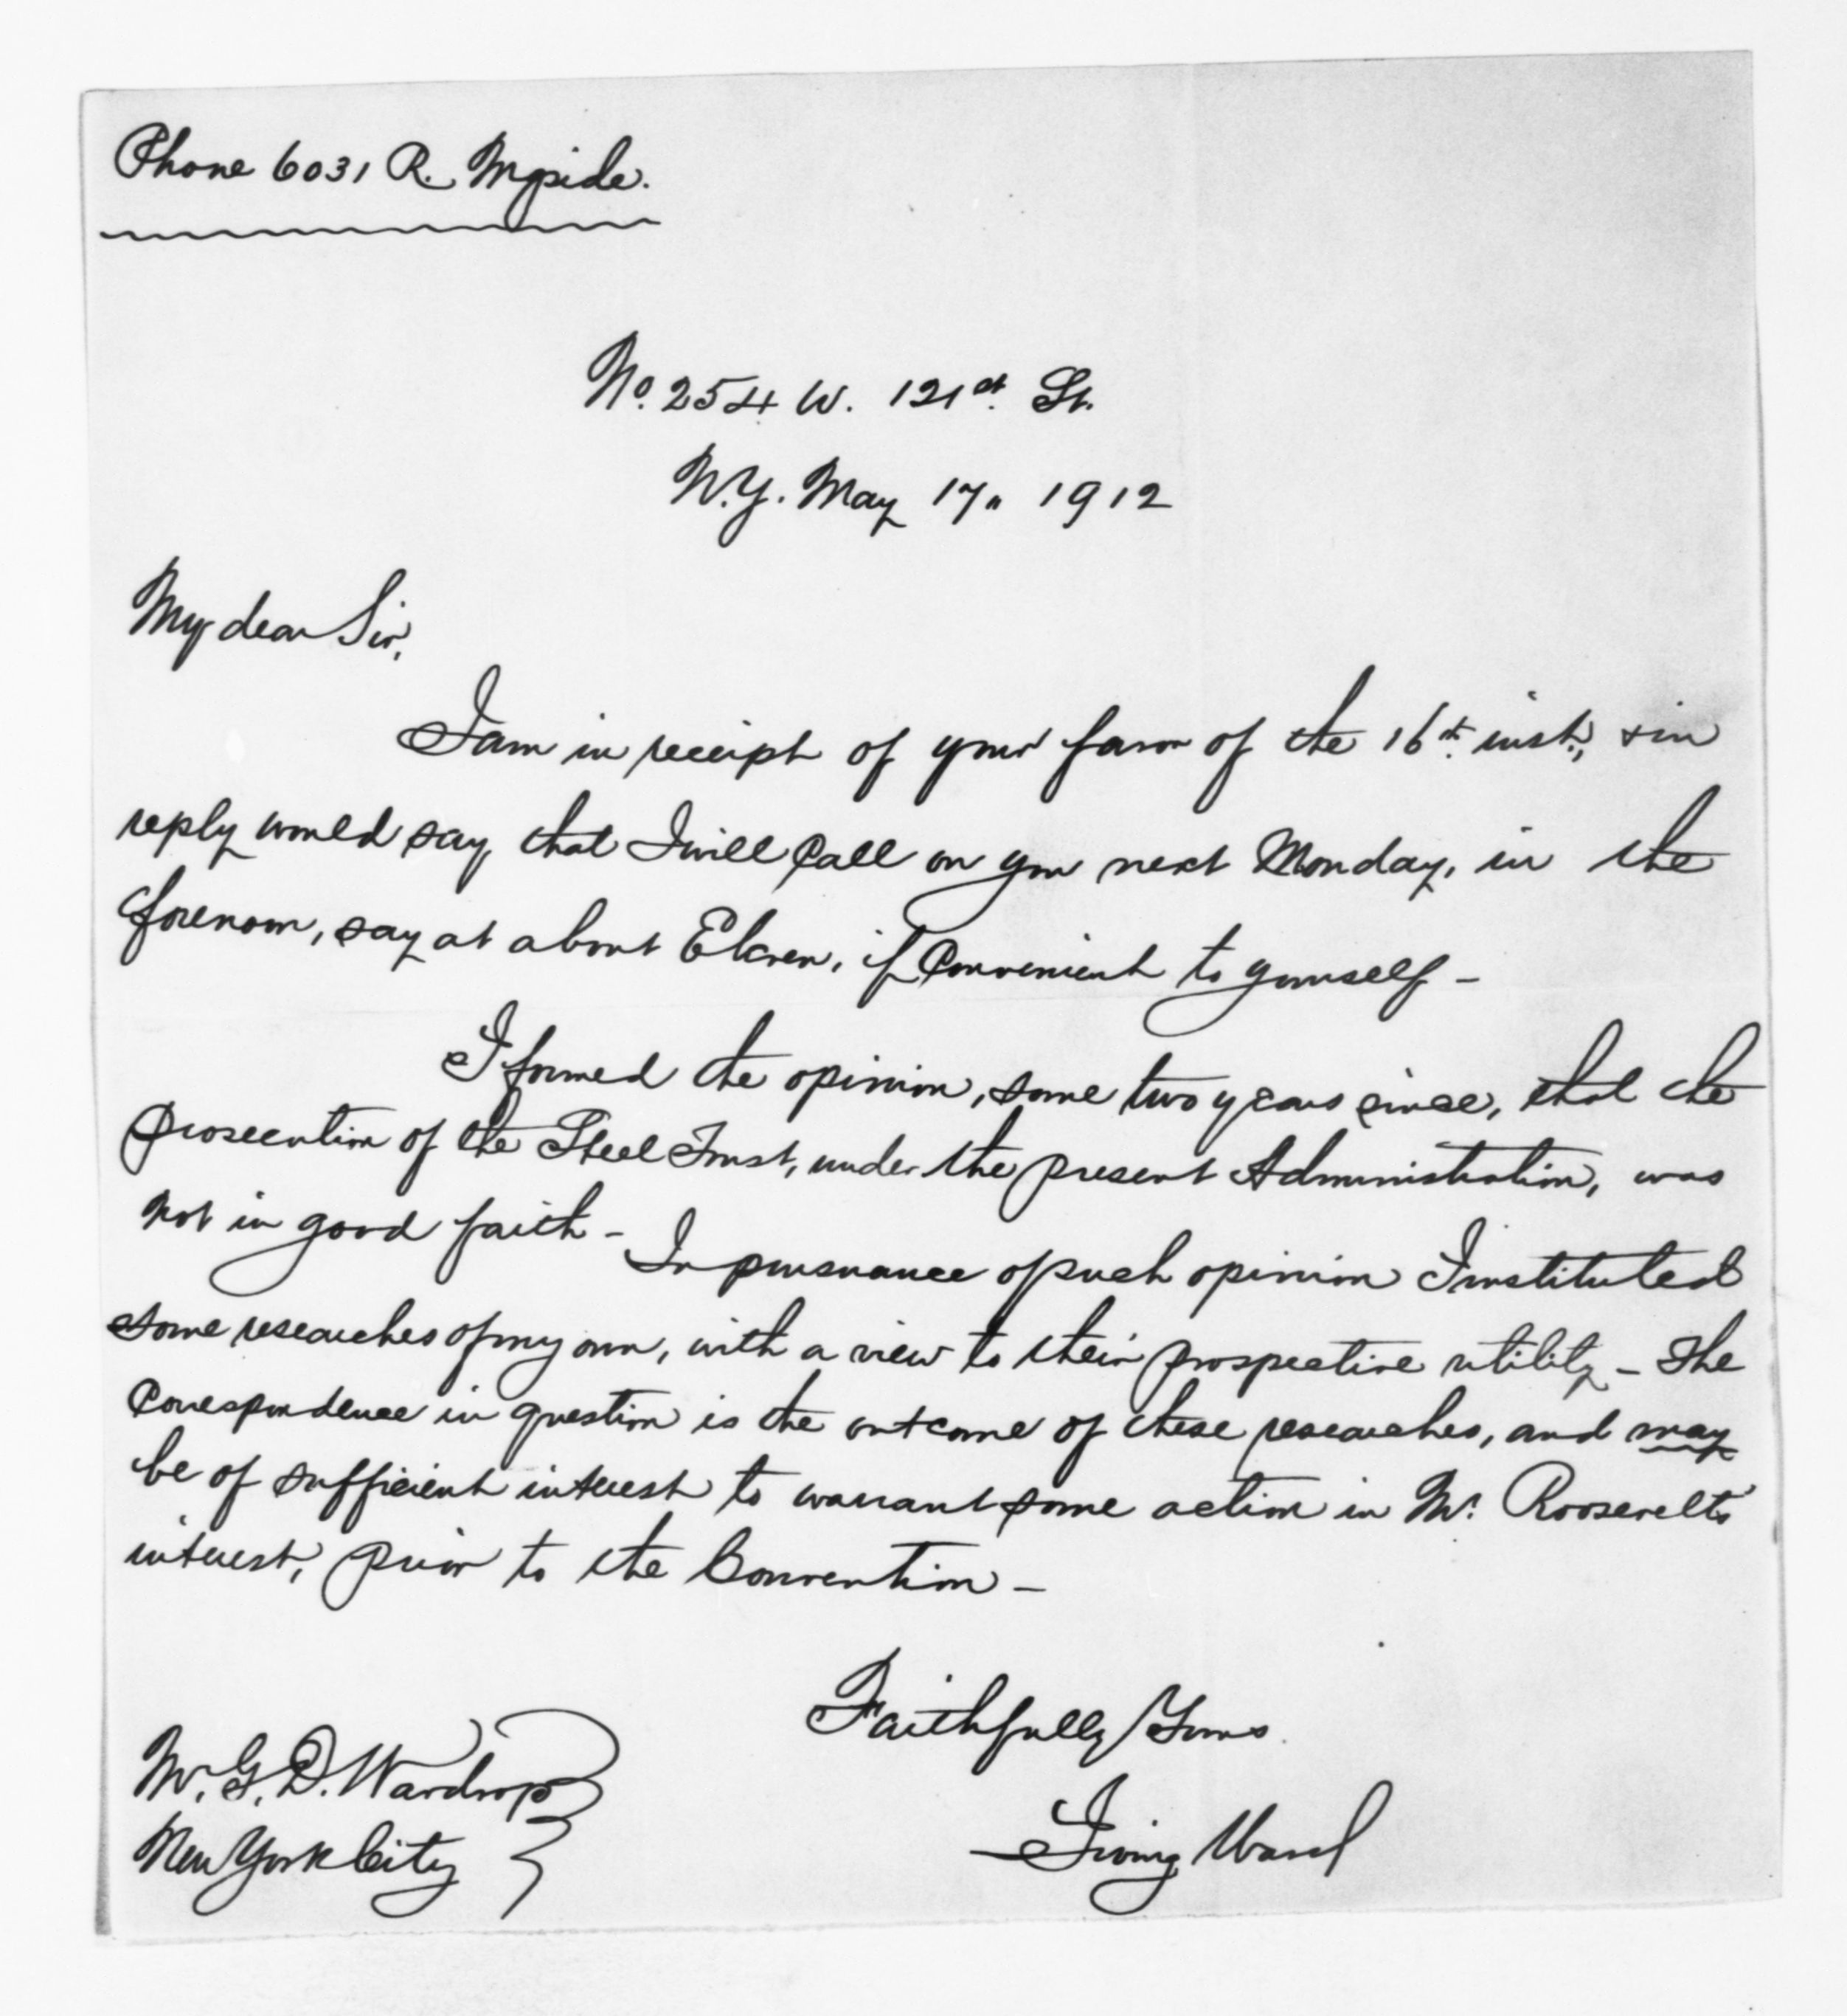 Phone 6031 R. Mgside.
No. 254 W. 121st. St.
N.Y. May 17" 1912
My dear Sir,
I am in receipt of your favor of the 16th. inst., & in
reply would say that I will call on you next Monday, in the
forenoon, say at about Eleven, if convenient to yourself -
I formed the opinion, some two years since, that the
prosecution of the Steel Trust, under the present Administration, was
not in good faith - In pursuance of such opinion I instituted
some researches of my own, with a view to their prospective utility - The
correspondence in question is the outcome of these researches, and may
be of sufficient interest to warrant some action in Mr. Roosevelt's
interest, prior to the Convention -
Faithfully Yours
Irving Ward
Mr. G. D. Wardrop
New York City